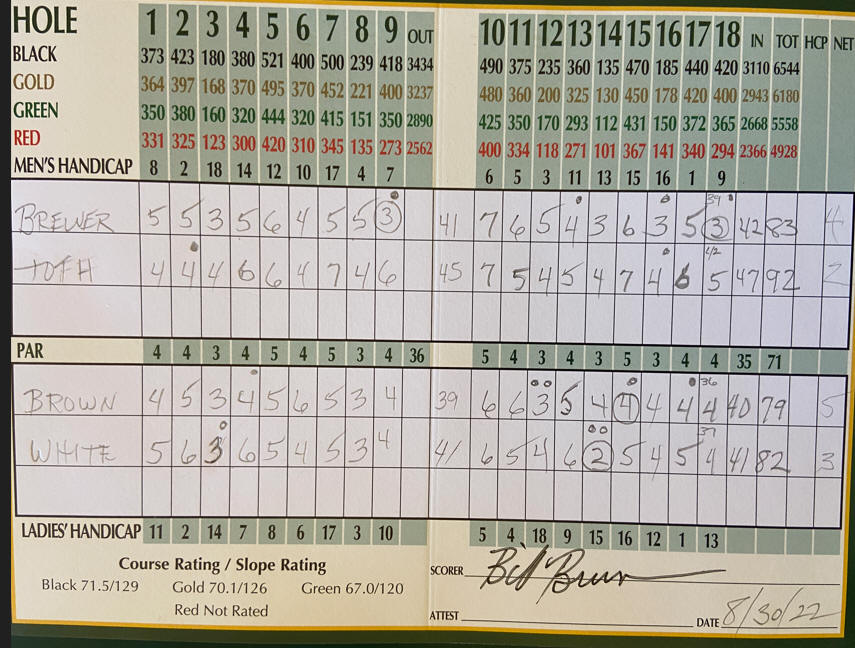 HOLE 1 2 3 4 5 6 7 8 9 OUT 10 11 12 13 14 15 16 17 18 IN TOT HCP NET
BLACK 373 423 180 380 521 400 500 239 418 3434 490 375 235 360 135 470 185 440 420 3110 6544
GOLD 364 397 168 370 495 370 452 221 400 3237 480 360 200 325 130 450 178 420 400 2943 6180
GREEN 350 380 160 320 444 320 415 151 350 2890 425 350 170 293 112 431 150 372 365 2668 5558
RED 331 325 123 300 420 310 345 135 273 2562 400 334 118 271 101 367 141 340 294 2366 4928
MEN'S HANDICAP 8 2 18 14 12 10 17 4 7 6 5 3 11 13 15 16 1 9
39
BREWER 5 5 3 5 6 4 5 5 3 41 7 6 5 4 3 6 3 5 3 42 83 4
42
TOTH 4 4 4 6 6 4 7 4 6 45 7 5 4 5 4 7 4 6 5 47 92 2
PAR 4 4 3 4 5 4 5 3 4 36 5 4 3 4 3 5 3 4 4 35 71
36
BROWN 4 5 3 4 5 6 5 3 4 39 6 6 3 5 4 4 4 4 4 40 79 5
37
WHITE 5 6 3 6 5 4 5 3 4 41 6 5 4 6 2 5 4 5 4 41 82 3
LADIES' HANDICAP 11 2 14 7 8 6 17 3 10 5 4 18 9 15 16 12 1 13
Course Rating / Slope Rating
Black 71.5/129 Gold 70.1/126 Green 67.0/120
Red Not Rated
SCORER Bill Brown
ATTEST DATE 8/30/22